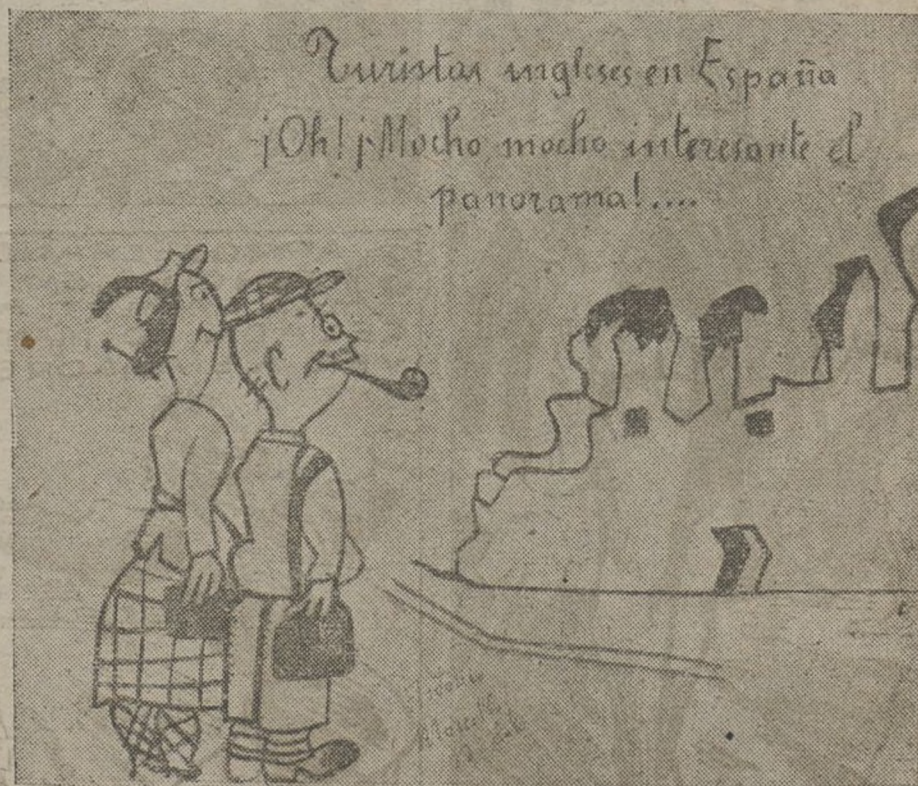 Turistas ingleses en España
¡Oh! ¡Mocho, mocho interesante el
panorama!....